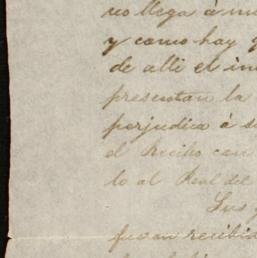 no llega á
y como hay
de alli el
presentan la
perjudica á
el Recibo con
lo al Real del
Sus
recibid